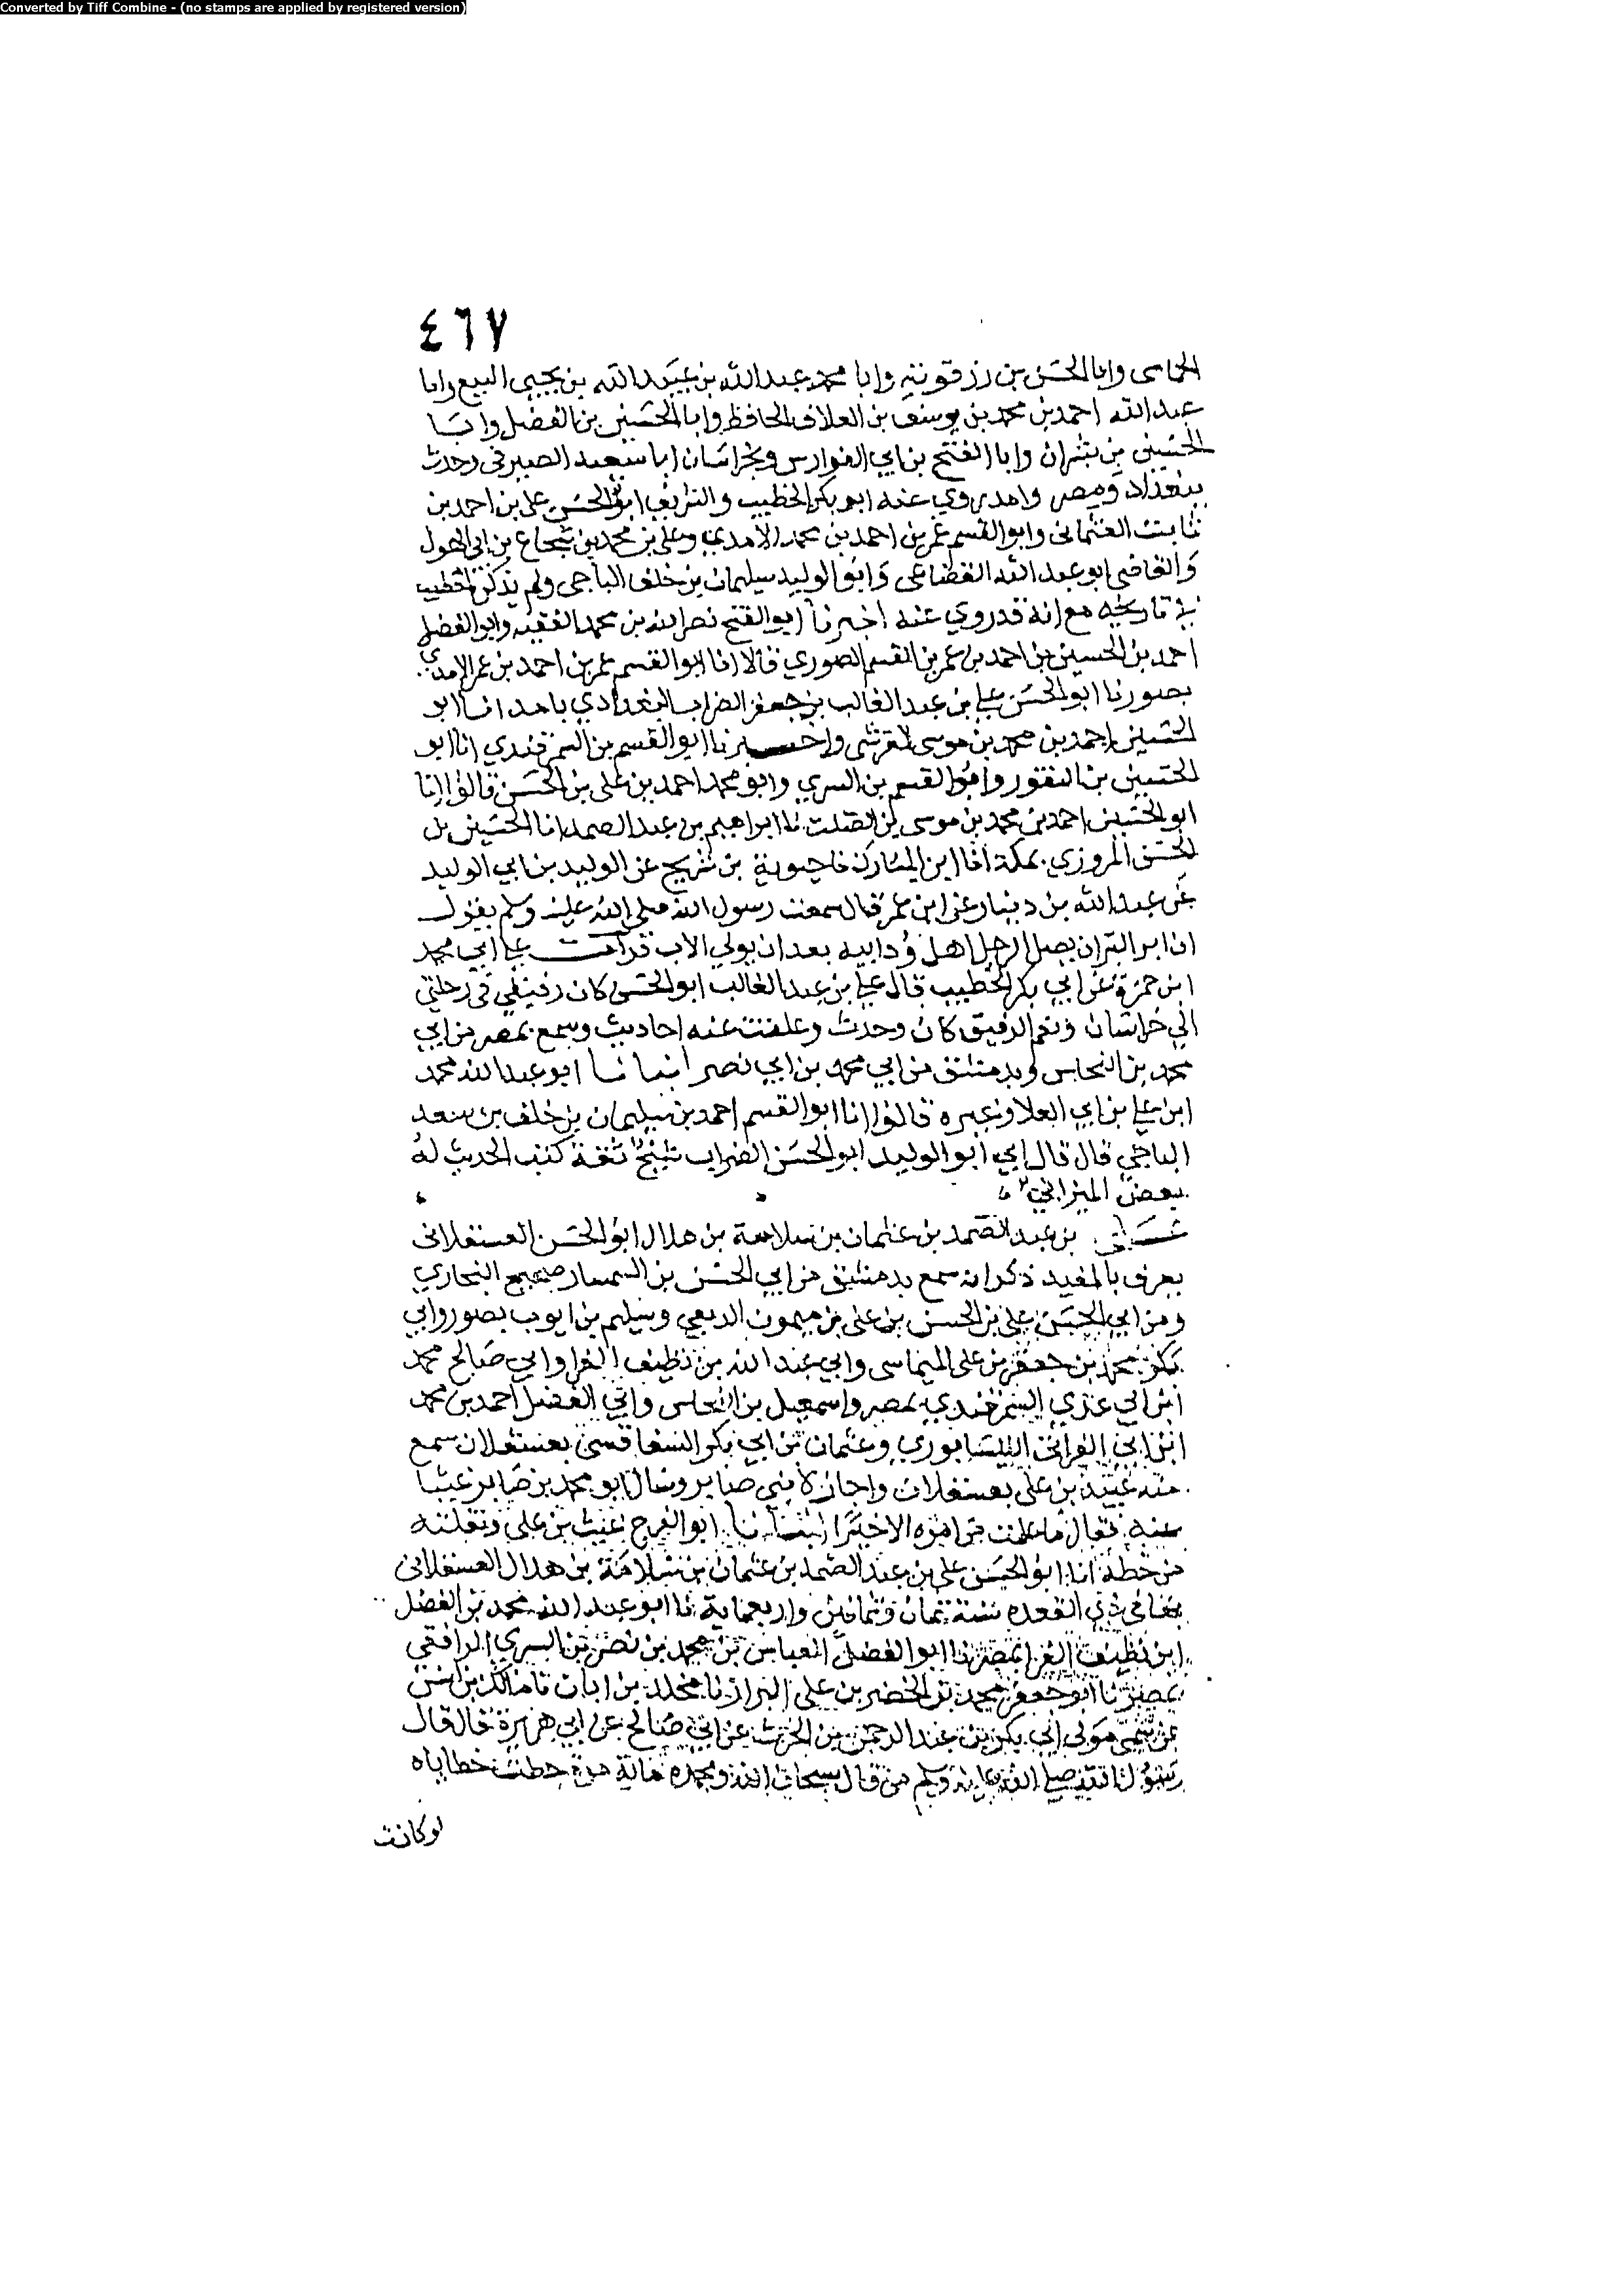 Converted by Tiff Combine - (no stamps are applied by registered version)
٤٦٧
الحمامى وابا الحسن بن رزقويه وابا محمد عبدالله بن عبيدالله بن يحيى البيع وابا
عبدالله احمد بن محمد بن يوسف بن العلاف الحافظ وابا الحسين بن الفضل وابا
الحسين بن بشران وابا الفتح بن ابي الفوارس وبخراسان ابا سعيد الصيرفى وحدث
ببغداد ومصر وامد روي عنه ابو بكر الخطيب والشريف ابو الحسن على بن احمد بن
ثابت العثمانى وابو القسم عمر بن احمد بن محمد الامدي وعلى بن محمد بن شجاع بن ابي الهول
والقاضى ابو عبد الله القضاعى وابو الوليد سليمان بن خلف الباجى ولم يذكره الخطيب
في تاريخه مع انه قد روي عنه اخبرنا ابو الفتح نصر الله بن محمد الفقيه وابو الفضل
احمد بن الحسين بن احمد بن عمر بن القسم الصوري قالا انا ابو القسم عمر بن احمد بن عمر الامدي
بصور نا ابو الحسن علي بن عبد الغالب بن جعفر الضراب البغدادي بامد انا ابو
الحسين احمد بن محمد بن موسى القرشى واخبرنا ابو القسم بن السمرقندي انا ابو
الحسين بن النقور وابو القسم بن البسري وابو محمد احمد بن على بن الحسن قالوا انا
ابو الحسين احمد بن محمد بن موسى بن الصلت نا ابراهيم بن عبد الصمد انا الحسين بن
الحسن المروزي بمكة انا ابن المبارك نا حيوية بن شريح عن الوليد بن ابي الوليد
عن عبد الله بن دينار عن ابن عمر قال سمعت رسول الله صلى الله عليه وسلم يقول
ان ابر البر ان يصل الرجل اهل ود ابيه بعد ان يولي الاب قرات علي ابي محمد
ابن حمزة عن ابي بكر الخطيب قال علي بن عبد الغالب ابو الحسن كان رفيقي في رحلتي
الي خراسان ونعم الرفيق كان وحدث وعلقت عنه احاديث وسمع بمصر من ابي
محمد بن النحاس وبدمشق من ابي محمد بن ابي نصر انبانا ابو عبد الله محمد
ابن علي بن ابي العلا وغيره قالوا انا ابو القسم احمد بن سليمان بن خلف بن سعد
الباجي قال قال ابي ابو الوليد ابو الحسن الضراب شيخ ثقة كتب الحديث له
بعض الميزاني
على بن عبد الصمد بن عثمان بن سلامة بن هلال ابو الحسن العسقلانى
يعرف بالمفيد ذكر انه سمع بدمشق من ابي الحسن بن السمسار صحيح البخاري
ومن ابي الحسن على بن الحسن بن على بن ميمون الربعي وسليم بن ايوب بصور وابي
بكر محمد بن جعفر بن على الميماسى وابي عبد الله بن نظيف الفرا وابي صالح محمد
ابن ابي عدي السمرقندي بمصر واسمعيل بن النحاس وابي الفضل احمد بن محمد
ابن ابي الفراتى النيسابوري وعثمان بن ابي بكر السفاقسى بعسقلان سمع
منه غيث بن على بعسقلان واجاز لابنى صابر وسال ابو محمد بن صابر غيثا
عنه فقال ما علمت من امره الا خيرا انبانا ابو الفرج غيث بن على ونقلته
من خطه انا ابو الحسن على بن عبد الصمد بن عثمان بن سلامة بن هلال العسقلانى
بها في ذي القعده سنة ثمان وثمانين واربعماية نا ابو عبد الله محمد بن الفضل
ابن نظيف الفرا بمصر نا ابو الفضل العباس بن محمد بن نصر بن السري الرافقي
بمصر نا ابو جعفر محمد بن الخضر بن على البزاز نا مخلد بن ابان نا مالك بن انس
عن سمى مولى ابي بكر بن عبد الرحمن بن الحرث عن ابي صالح عن ابي هريرة قال قال
رسول الله صلى الله عليه وسلم من قال سبحان الله وبحمده ماية مرة حطت خطاياه
لو كانت